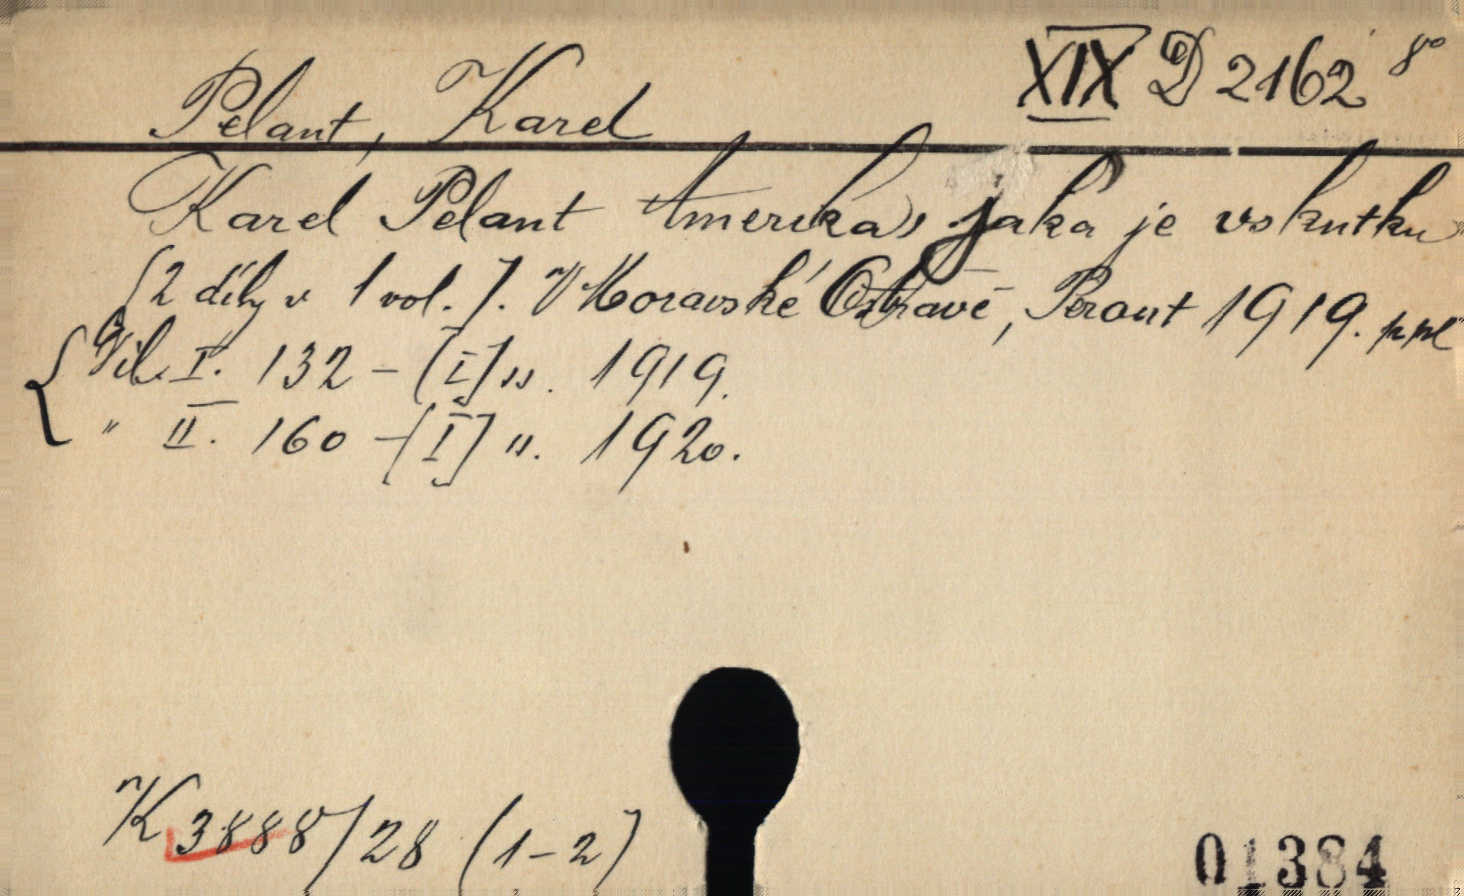 XIX D 2162 8°
Pelant, Karel
Karel Pelant Amerika, jaka je vskutku
[2 díly v 1 vol.]. V Moravské Ostravě, Perout 1919.
Díl. I. 132 - [I] ss. 1919.
" II. 160 - [I] ss. 1920.
K 3888/28 (1-2)
01384